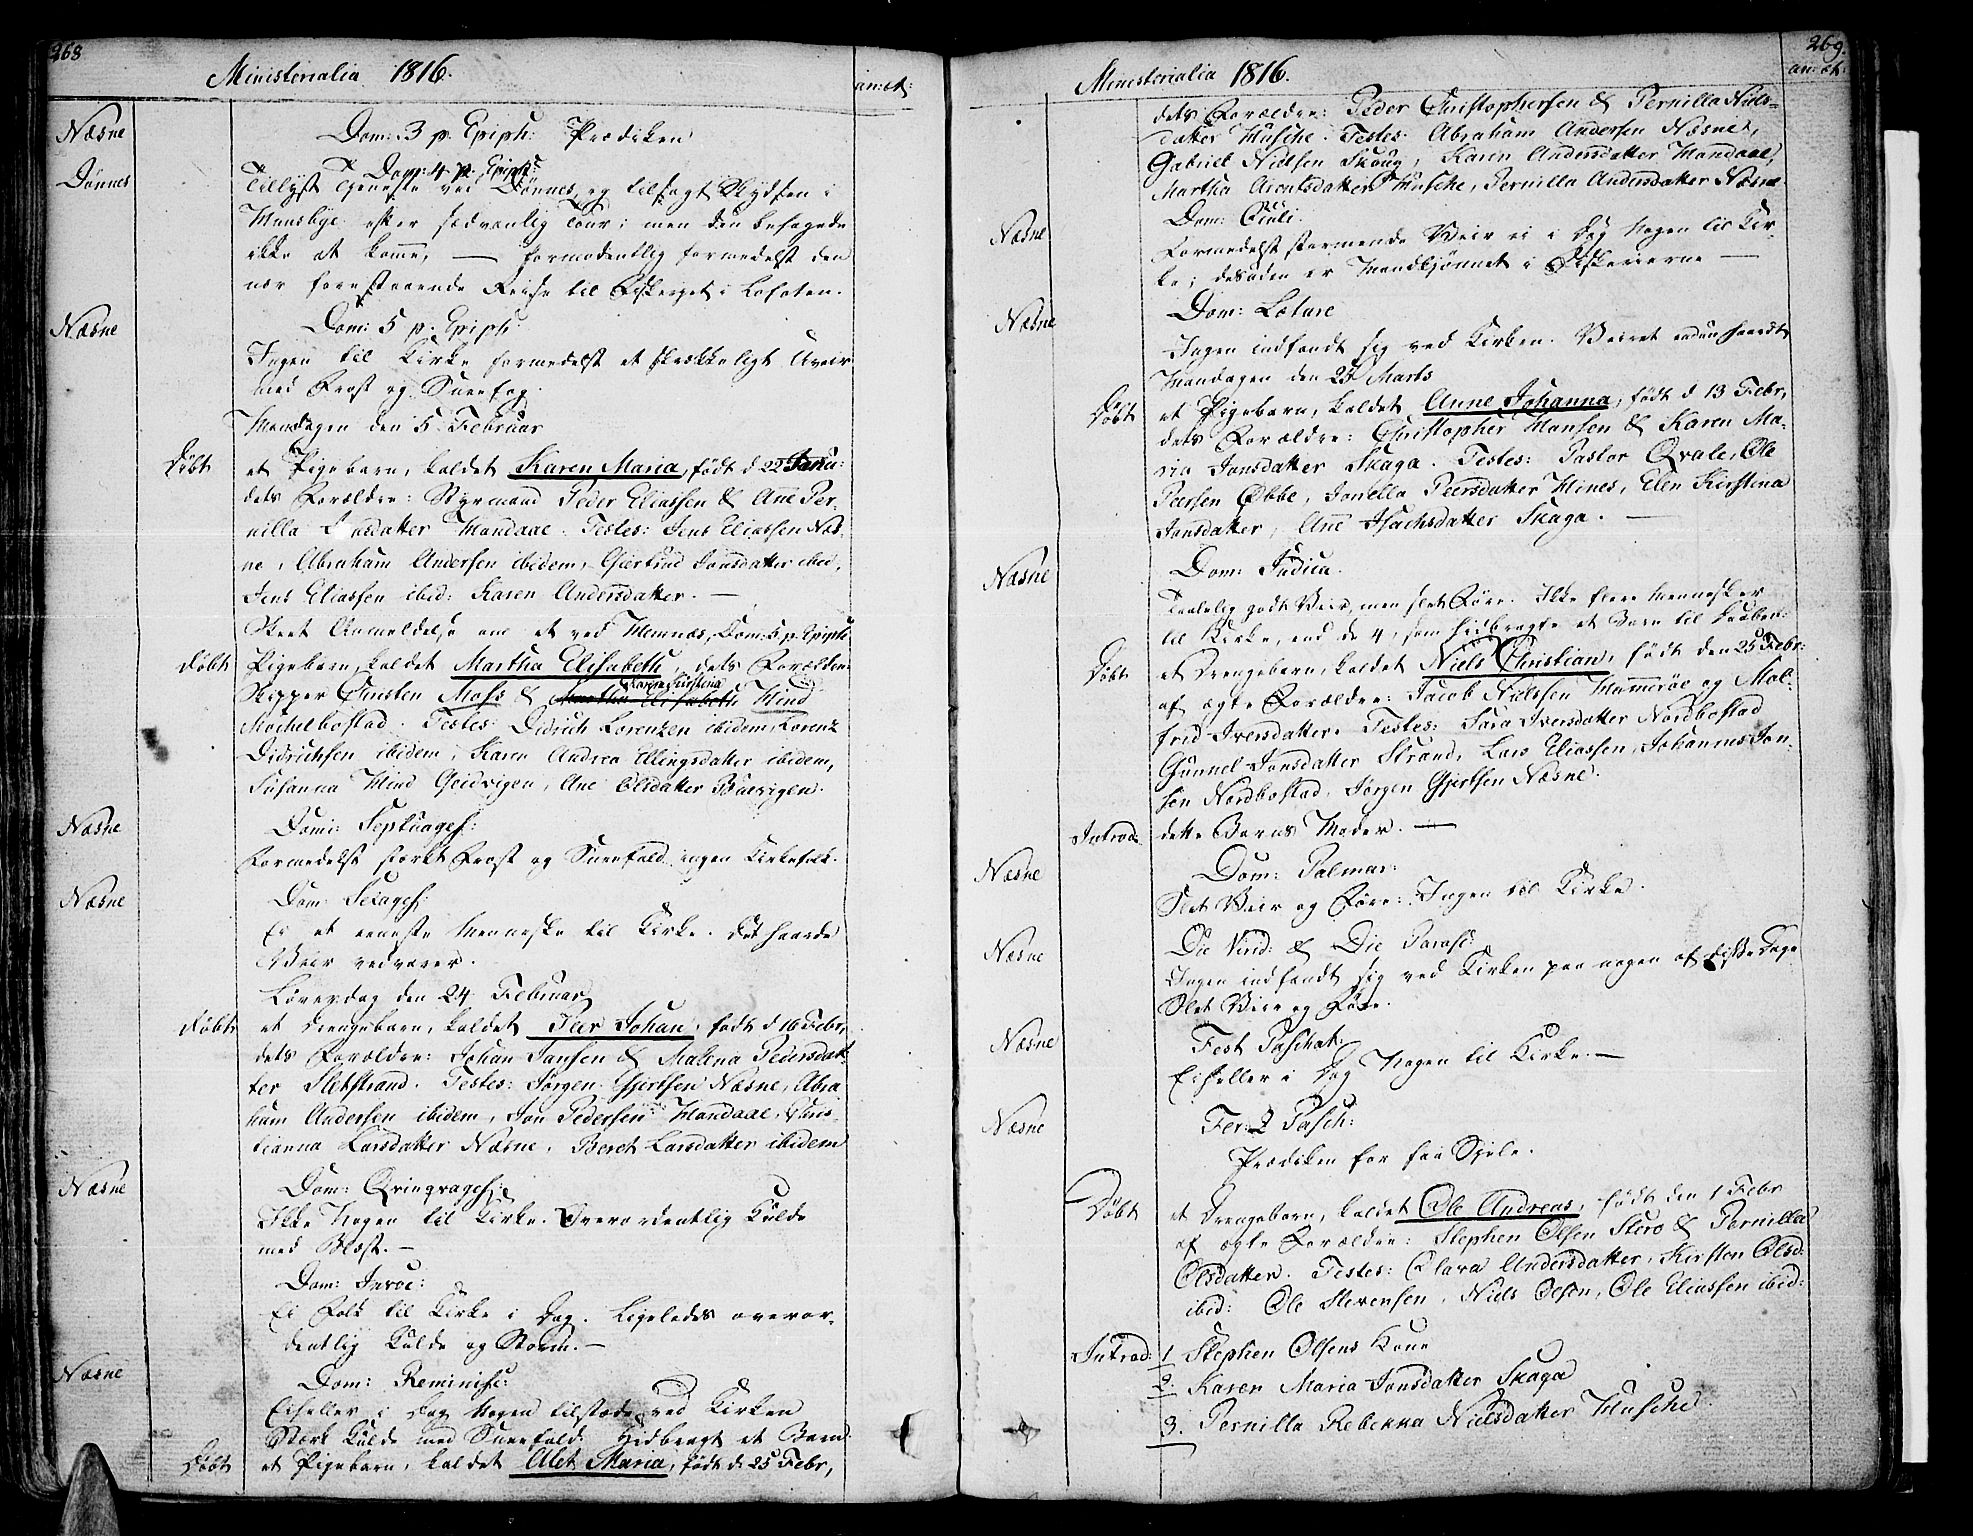 268
Ministerialia 1816.
an: æt:
Næsne
Dom: 3 p. Epiph: Prædiken
Dom: 4 p. Epiph:
Dønnes
Tillyst Tjeneste ved Dønnes, og tilsagt Skydsen i
Huusbye efter sædvanlig Tour; men den behagede
ikke at komme, — formodentlig formedelst den
nær forestaaende Reise til Fiskeriet i Lofoten.
Næsne
Dom: 5 p. Epiph:
Ingen til Kirke formedelst et skrækkeligt Uveir
med Frost og Sneefog.
Mandagen den 5 Februar
Døbt
et Pigebarn, kaldet Karen Maria, født d 22 Janu:
dets Forældre: Styrmand Peder Eliassen & Ane Per-
nilla Jonsdatter Mandaae. Testes: Jens Eliassen Næs-
ne, Abraham Andersen ibidem, Gjertrud Jonsdatter ibid,
Jens Eliassen ibid: Karen Andersdatter. —
Skeet Anmeldelse om et ved Hemnæs, Dom: 5 p. Epiph
Døbt
Pigebarn, kaldet Martha Elisabeth, dets Forældre:
Karen Kirstina
Skipper Christen Moss & Martha Elisabeth Hind
Mochelbostad. Testes: Didrich Lorenzen ibidem, Lorenz
Didrichsen ibidem, Karen Andrea Ellingsdatter ibidem,
Susanna Hind Geidvigen, Ane Olsdatter
Næsne
Domi: Septuages:
Formedelst stærkt Frost og Sneefald ingen Kirkefolk.
Næsne
Dom: Sexages:
Ei et eeneste Menneske til Kirke. Det haarde
Veir vedvarer.
Løverdag den 24 Februar
Døbt
et Drengebarn, kaldet Peer Johan, født d 16 Febr,
dets Forældre: Johan Jansen & Malena Pedersdat-
ter Sletstrand. Testes: Jørgen Gjertsen Næsne, Abra-
ham Andersen ibidem, Jon Pedersen Mandaae, Chris-
tianna Larsdatter Næsne, Beret Larsdatter ibidem
Næsne
Dom: Qvinqvages:
Ikke Nogen til Kirke. Overordentlig Kulde
med Blæst. —
Dom: Invoc:
Ei Folk til Kirke i Dag. Ligeledes overor-
dentlig Kulde og Storm. —
Næsne
Dom: Reminisc:
Ei heller i Dag Nogen tilstæde ved Kirken
Stærk Kulde med Sneefald. Hidbragt et Barn
Døbt
et Pigebarn, kaldet Alet Maria, født d. 25 Febr,
269.
Ministerialia 1816.
an: æt:
dets Forældre: Peder Christophersen & Pernilla Niels-
datter Husche. Testes: Abraham Andersen Næsne,
Gabriel Nielsen Skoug, Karen Andersdatter Mandaae,
Martha Arentsdatter Husche, Pernilla Andersdatter Næsne.
Næsne
Dom: Oculi.
Formedelst stormende Veir ei i Dag Nogen til Kir-
ke; desuden er Mandkjønnet i Fiskerierne —
Næsne
Dom: Lætare
Ingen indfandt sig ved Kirken. Veiret endnu haardt
Mandagen den 25 Marts
Døbt
et Pigebarn, kaldet Anne Johanna, født d 13 Febr,
dets Forældre: Christopher Hansen & Karen Ma-
ria Jonsdatter Skaga. Testes: Pastor Qvale, Ole
Peersen Øbbe, Jonetta Peersdatter Hines, Elen Kirstina
Jonsdatter, Ane Isachsdatter Skaga. —
Næsne
Dom: Judica.
Taalelig godt Veir, men slet Føre. Ikke flere Mennesker
til Kirke, end de 4, som hidbragte et Barn til Daaben.
Døbt
et Drengebarn, kaldet Niels Christian, født den 25 Febr:
af ægte Forældre: Jacob Nielsen Hammerøe og Mal-
frid Iversdatter. Testes: Sara Iversdatter Nordbostad
Gunnel Jonsdatter Strand, Lars Eliassen, Johannes Jon-
sen Nordbostad, Jørgen Gjertsen Næsne.
Introd:
dette Barns Moder. —
Næsne
Dom: Palmar:
Slet Veir og Føre: Ingen til Kirke.
Næsne
Die Virid: & Die Parasc:
Ingen indfandt sig ved Kirken paa nogen af disse Dage
Slet Veir og Føre.
Næsne
Fest Paschat:
Ei heller i Dag Nogen til Kirke. —
Næsne
Fer: 2 Pasch:
Prædiken for faa Sjele.
Døbt
et Drengebarn, kaldet Ole Andreas, født den 1 Febr
af ægte Forældre: Stephen Olsen Stero & Pernilla
Olsdatter. Testes: Clara Andersdatter, Kirsten Olsd:
ibid: Ole Stevensen, Niels Olsen, Ole Eliassen ibid:
Introd:
1 Stephen Olsens Kone
2. Karen Maria Jonsdatter Skaga
3. Pernilla Rebekka Nielsdatter Husche.